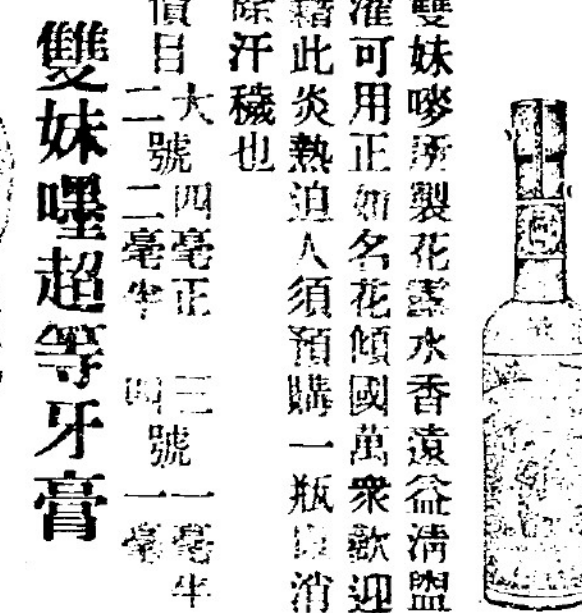 雙妹嘜所製花露水香遠益清盥
濯可用正如名花傾國萬衆歡迎
藉此炎熱迫人須預購一瓶 消
除汗穢也
價目
大號四毫正
二號二毫半
三號一毫半
四號一毫
雙妹嘿超等牙膏